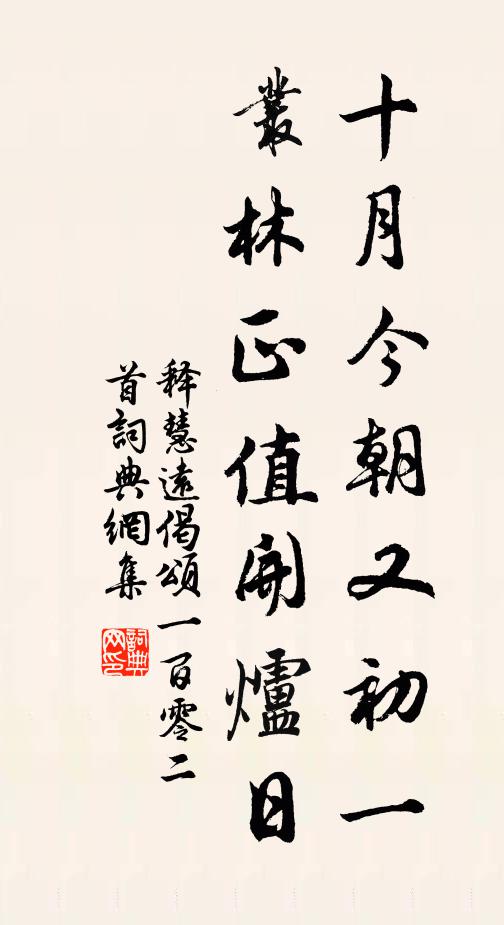 十月今朝又初一
叢林正值開爐日
释慧遠偈頌一百零二
首詞典網集
詞典
网印